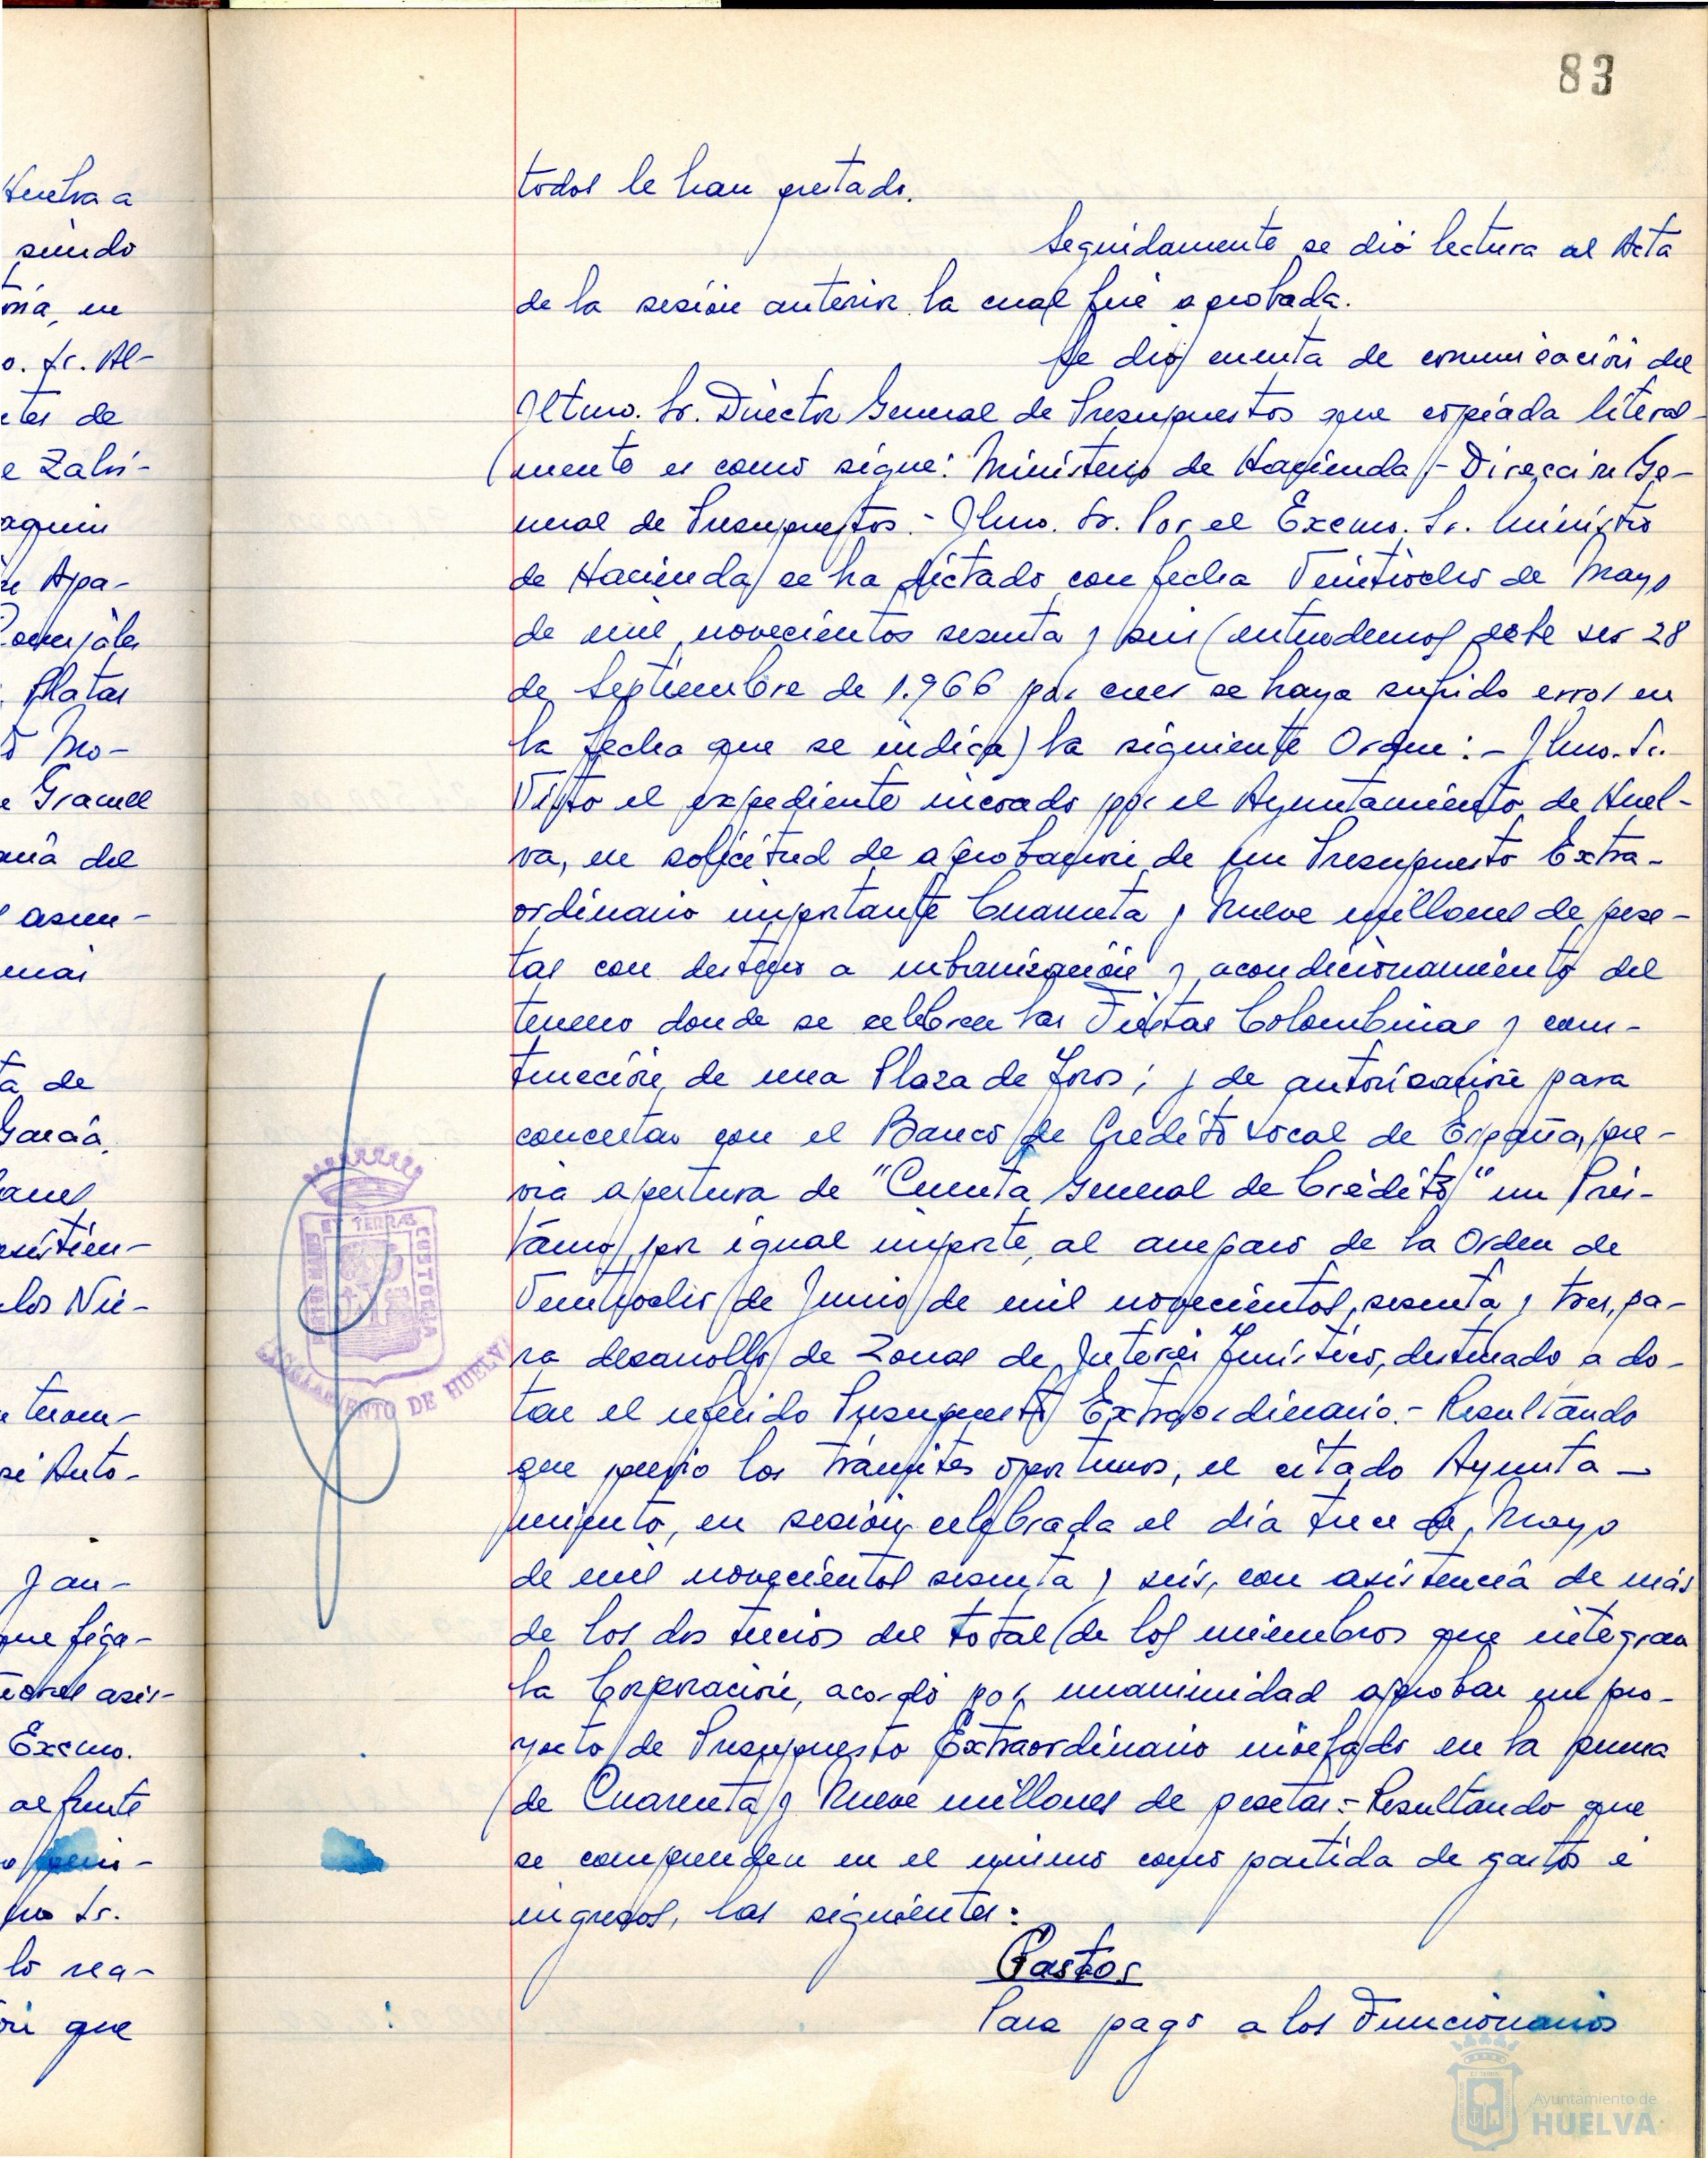 83
Huelva a
siendo
ria, en
o. Sr. Al-
ntes de
e Zalvi-
aquin
Apa-
Gonzáles
Platas
Mo-
e Gracell
del
asun-
más
ta de
García,
anuel
asistien-
los Nie-
se Anto-
que figu-
asis-
Excmo.
al frente
Sr.
lo rea-
que
todos le han prestado.
Seguidamente se dió lectura al Acta
de la sesión anterior la cual fué aprobada.
Se dió cuenta de comunicación del
Iltmo. Sr. Director General de Presupuestos que copiada literal-
mente es como sigue: Ministerio de Hacienda - Dirección Ge-
neral de Presupuestos.- Ilmo. Sr. Por el Excmo. Sr. Ministro
de Hacienda se ha dictado con fecha Veintiocho de Mayo
de mil novecientos sesenta y seis (entendemos debe ser 28
de Septiembre de 1.966 por creer se haya sufrido error en
la fecha que se indica) la siguiente Orden:- Ilmo. Sr.
Visto el expediente incoado por el Ayuntamiento de Huel-
va, en solicitud de aprobación de un Presupuesto Extra-
ordinario importante Cuarenta y Nueve millones de pese-
tas con destino a urbanización y acondicionamiento del
terreno donde se celebren las Fiestas Colombinas y cons-
trucción de una Plaza de Toros; y de autorización para
concertar con el Banco de Crédito Local de España, pre-
via apertura de "Cuenta General de Crédito" un Prés-
tamo por igual importe, al amparo de la Orden de
Veintiocho de Junio de mil novecientos sesenta y tres, pa-
ra desarrollo de Zonas de Interés Turístico, destinado a do-
tar el referido Presupuesto Extraordinario.- Resultando
que previo los trámites oportunos, el citado Ayunta-
miento, en sesión celebrada el día trece de Mayo
de mil novecientos sesenta y seis, con asistencia de más
de los dos tercios del total de los miembros que integran
la Corporación, acordó por unanimidad aprobar un pro-
yecto de Presupuesto Extraordinario nivelado en la suma
de Cuarenta y Nueve millones de pesetas:- Resultando que
se comprenden en el mismo como partida de gastos é
ingresos, las siguientes:
Gastos
Para pago a los Funcionarios
ET TERRAE CUSTODIA
PORTUS MARIS
AYUNTAMIENTO DE HUELVA
Ayuntamiento de
HUELVA